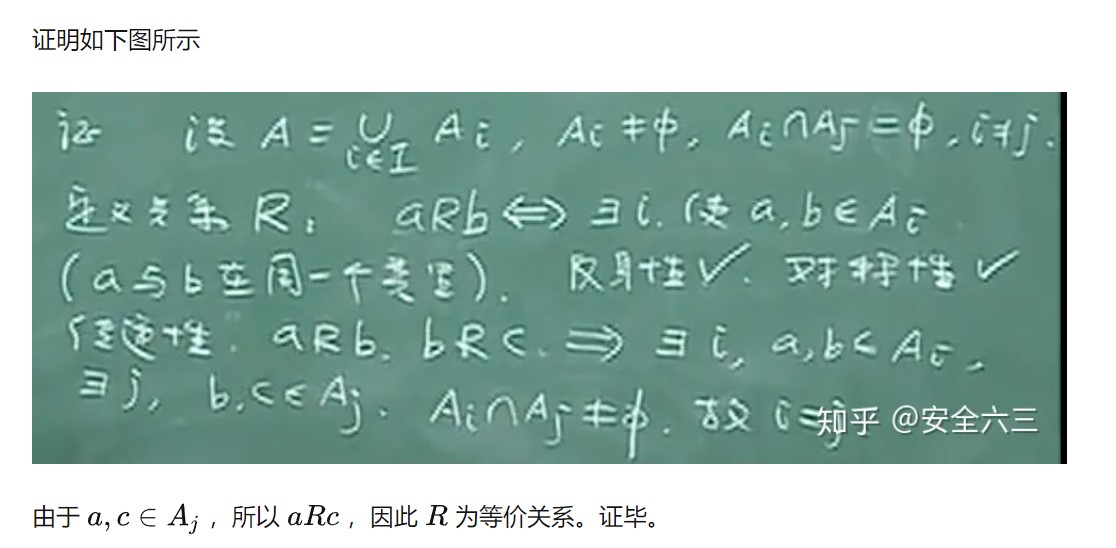 证明如下图所示
证 设 A = ∪ Ai , Ai ≠ φ, Ai ∩ Aj = φ, i ≠ j.
i∈I
定义关系 R: aRb ⟺ ∃ i. 使 a, b ∈ Ai
(a与b在同一个类里). 反身性 ✓. 对称性 ✓
传递性. aRb. bRc. ⟹ ∃ i, a, b ∈ Ai,
∃ j, b, c ∈ Aj. Ai ∩ Aj ≠ φ. 故 i = j
知乎 @安全六三
由于 a, c ∈ Aj ，所以 aRc ，因此 R 为等价关系。证毕。